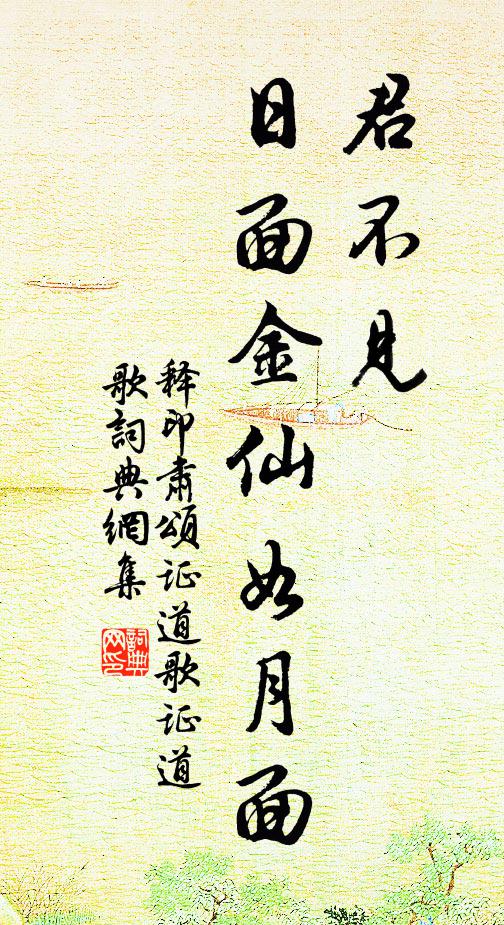 君不见
日面金仙如月面
释印肃颂证道歌证道
歌词典网集
词典网印